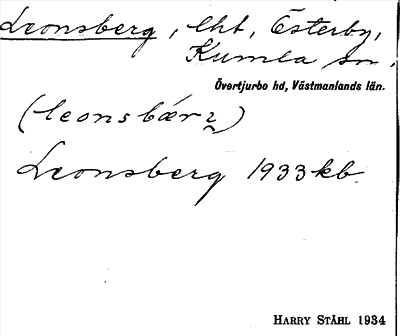 Leonsberg, lht, Österby,
Kumla sn,
Övertjurbo hd, Västmanlands län.
(leonsbær2)
Leonsberg 1933 kb.
HARRY STÅHL 1934